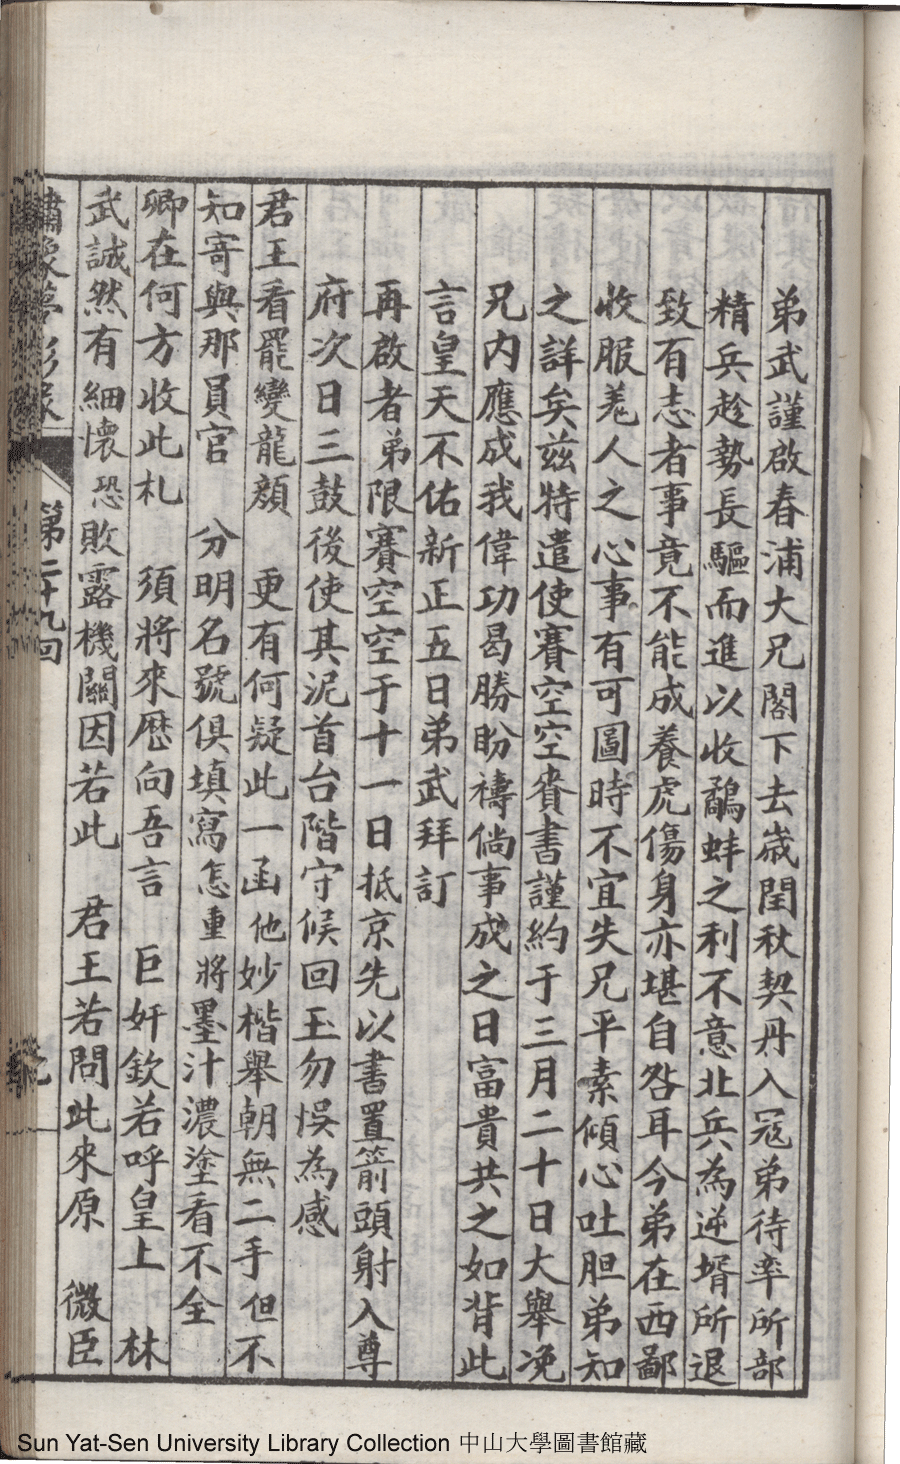 弟武謹啟春浦大兄閣下去歲閏秋契丹入冦弟待率所部
精兵趁勢長驅而進以收鷸蚌之利不意北兵為逆壻所退
致有志者事竟不能成養虎傷身亦堪自咎耳今弟在西鄙
收服羗人之心事有可圖時不宜失兄平素傾心吐胆弟知
之詳矣兹特遣使賽空空賫書謹約于三月二十日大舉凂
兄内應成我偉功曷勝盼禱倘事成之日富貴共之如背此
言皇天不佑新正五日弟武拜訂
再啟者弟限賽空空于十一日抵京先以書置箭頭射入尊
府次日三鼓後使其泥首台階守候回玉勿悞為感
君王看罷變龍顔　更有何疑此一函他妙楷舉朝無二手但不
知寄與那員官　分明名號俱填寫怎重將墨汁濃塗看不全
卿在何方收此札　須將來歷向吾言　巨奸欽若呼皇上　林
武誠然有細懷恐敗露機關因若此　君王若問此來原　微臣
繡像夢影緣
第二十九回
Sun Yat-Sen University Library Collection 中山大學圖書館藏